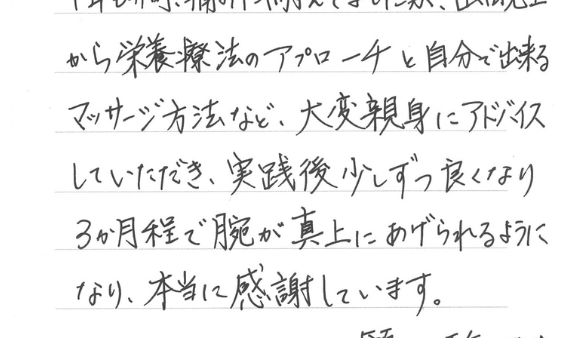 から栄養療法のアプローチと自分で出来る
マッサージ方法など、大変親身にアドバイス
していただき、実践後少しずつ良くなり
3か月程で腕が真上にあげられるように
なり、本当に感謝しています。